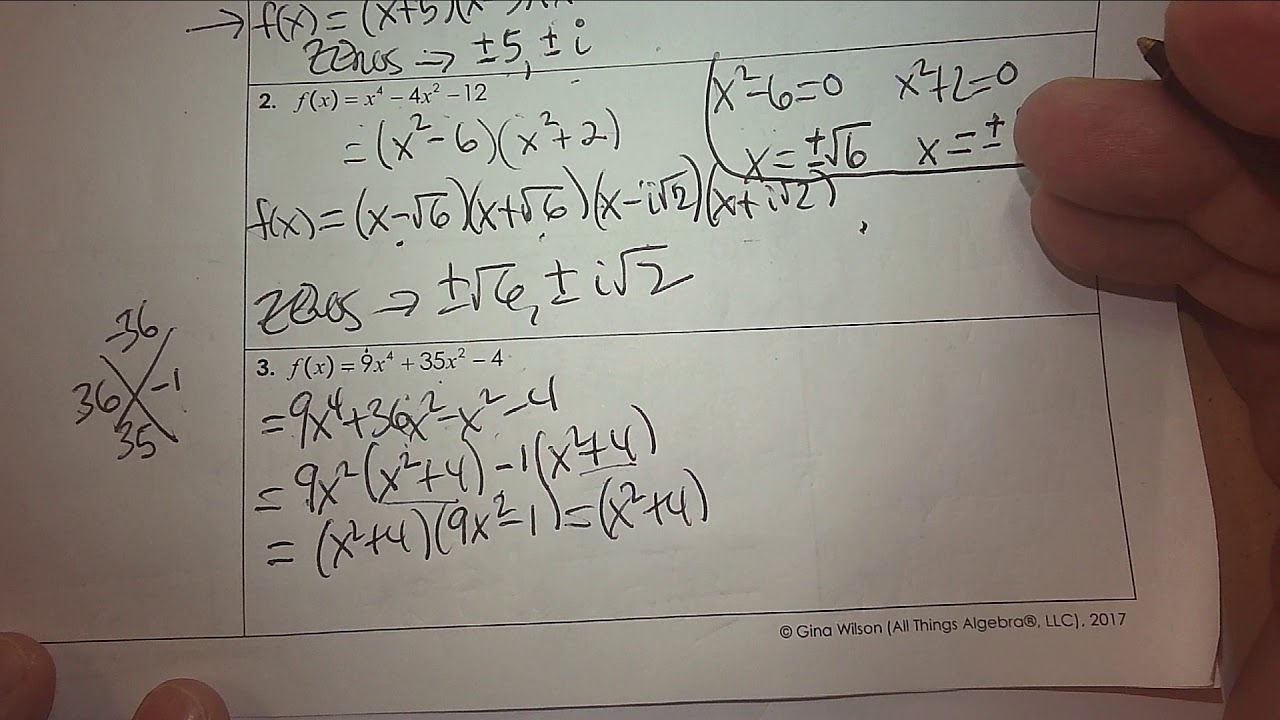 → f(x) = (x+5)(x
zeros → ±5, ± i
2. f(x) = x⁴ − 4x² − 12
= (x² − 6)(x² + 2)
x² − 6 = 0 x² + 2 = 0
x = ±√6 x = ±
f(x) = (x − √6)(x + √6)(x − i√2)(x + i√2)
zeros → ±√6, ± i√2
3. f(x) = 9x⁴ + 35x² − 4
-36
36 -1
35
= 9x⁴ + 36x² − x² − 4
= 9x²(x² + 4) − 1(x² + 4)
= (x² + 4)(9x² − 1) = (x² + 4)
© Gina Wilson (All Things Algebra®, LLC), 2017